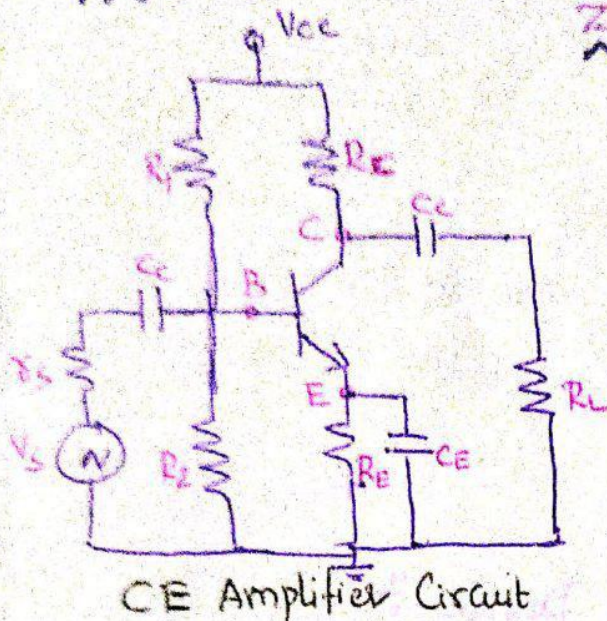 Vcc
R1
Rc
Cc
C
Cc
B
rs
E
RL
Vs
R2
RE
CE
CE Amplifier Circuit